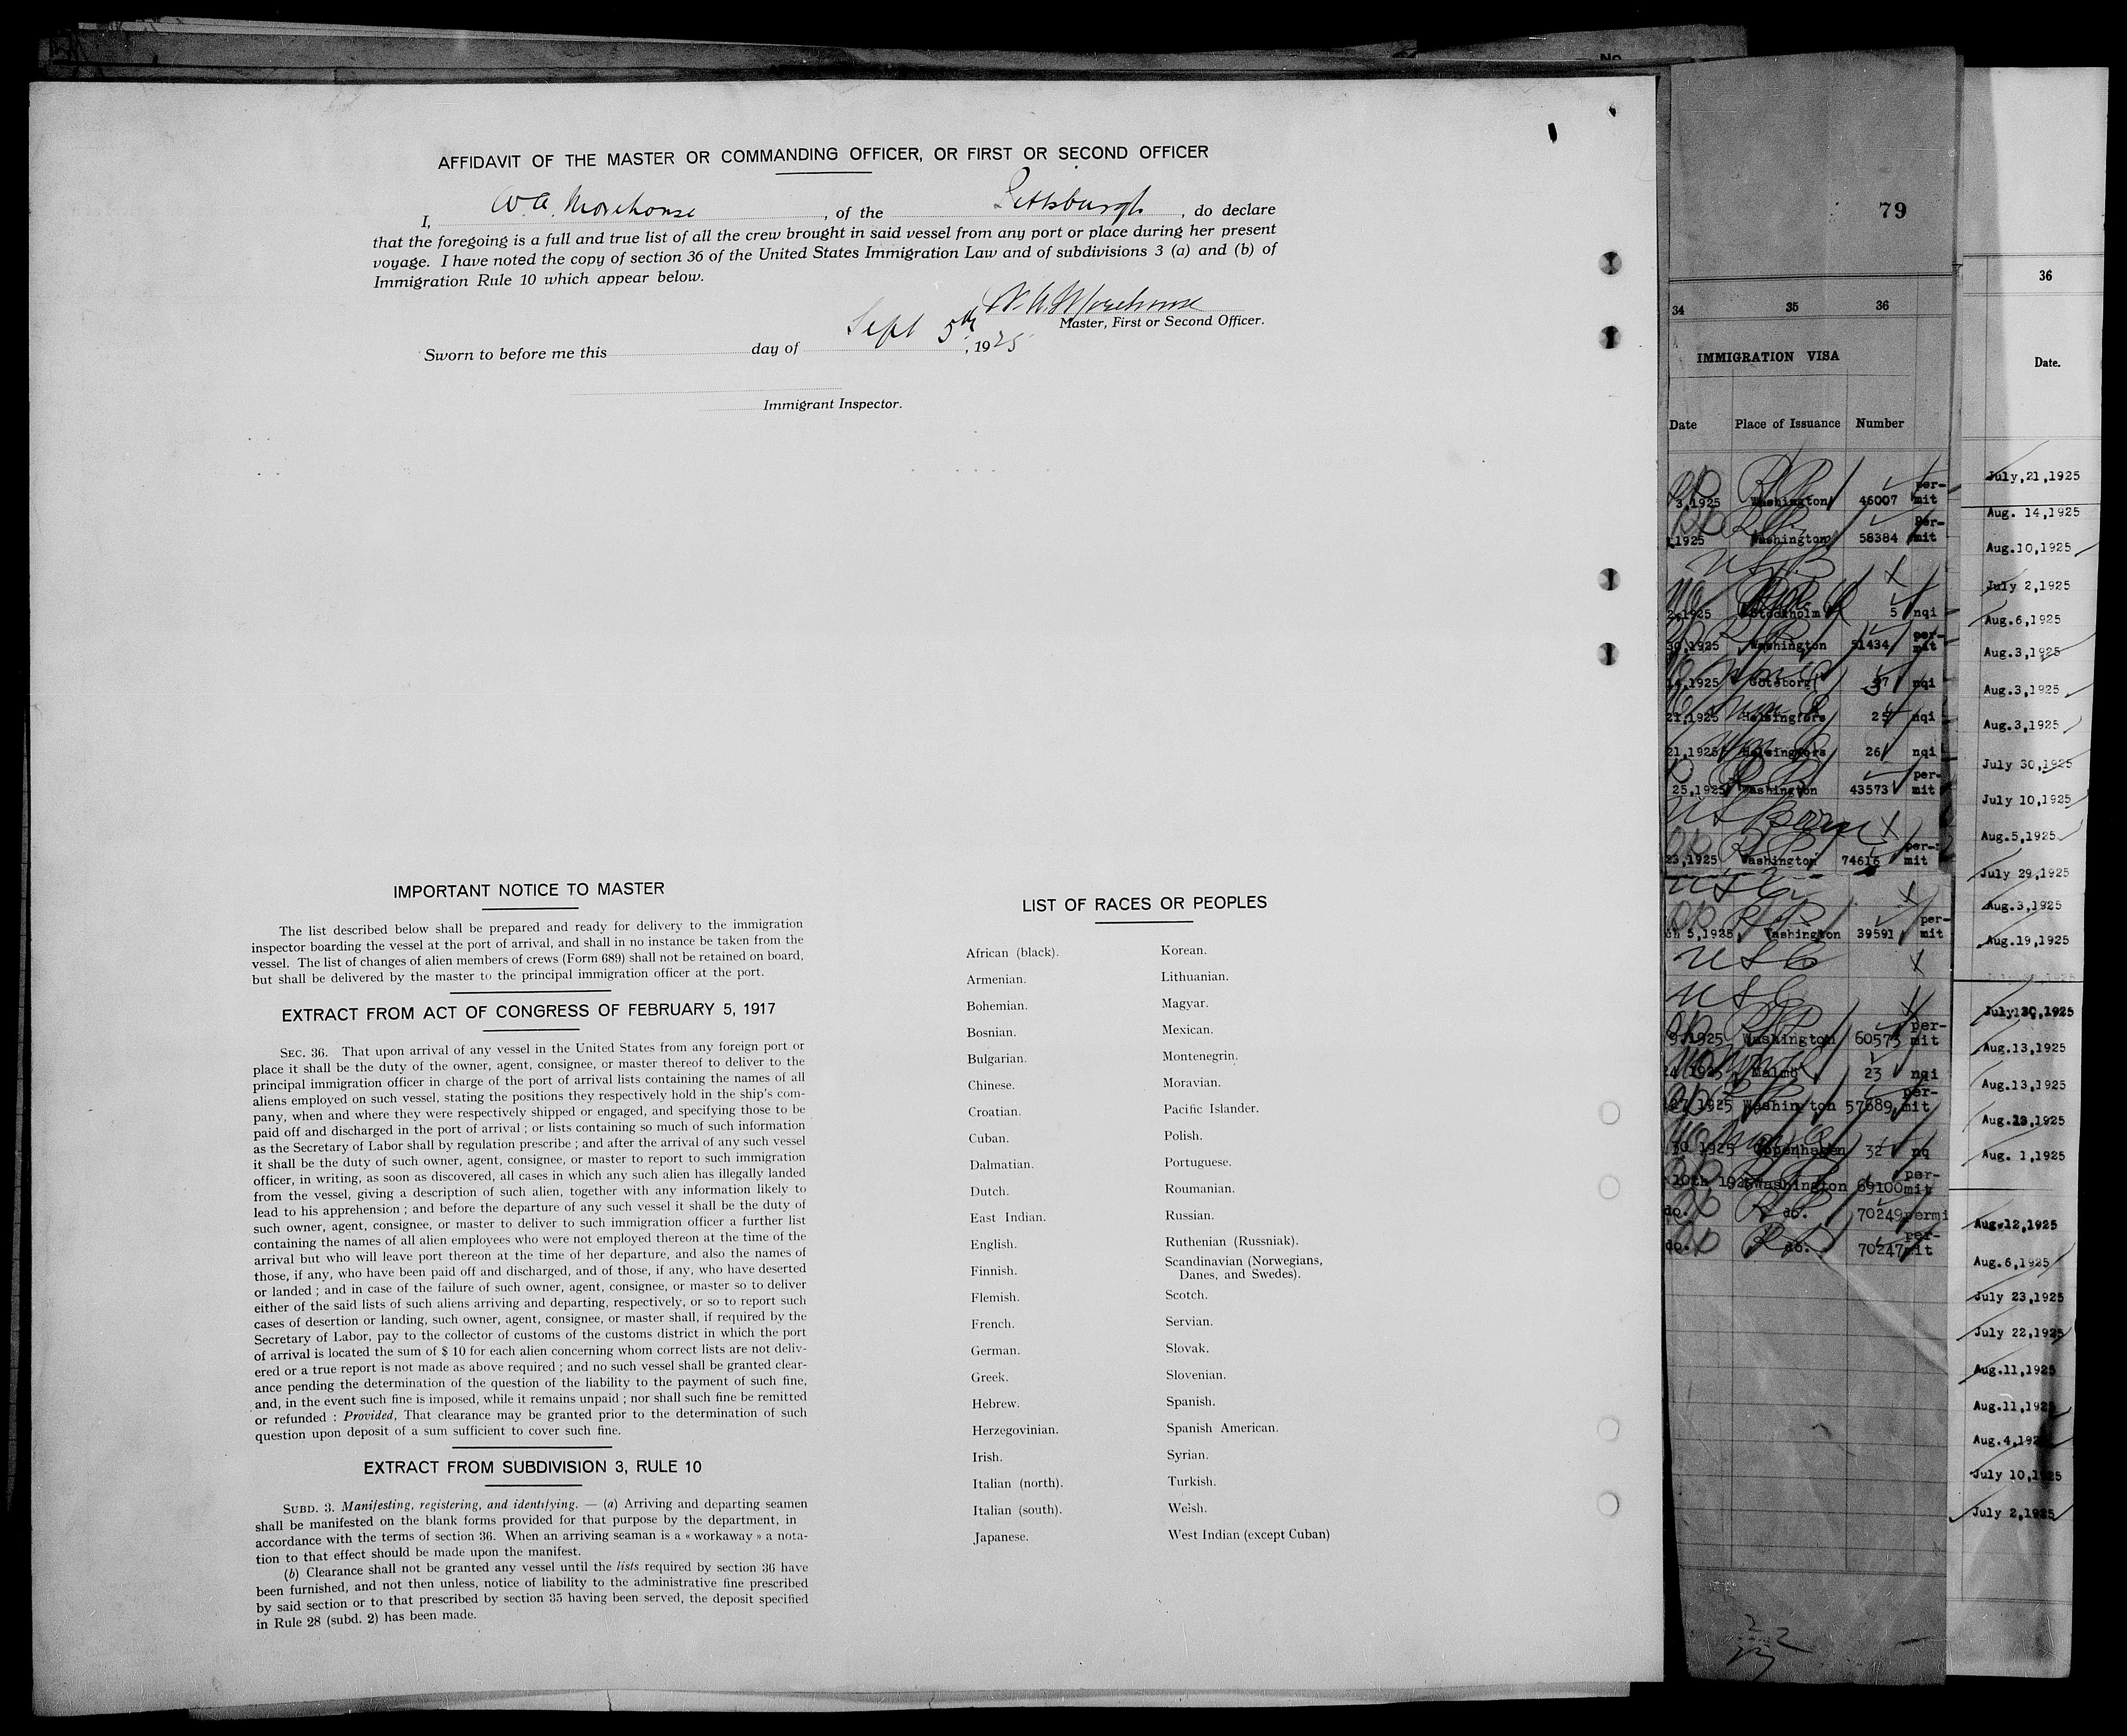 No
AFFIDAVIT OF THE MASTER OR COMMANDING OFFICER, OR FIRST OR SECOND OFFICER
I, W. A. Morehouse, of the Pittsburgh, do declare
that the foregoing is a full and true list of all the crew brought in said vessel from any port or place during her present
voyage. I have noted the copy of section 36 of the United States Immigration Law and of subdivisions 3 (a) and (b) of
Immigration Rule 10 which appear below.
W. A. Morehouse
Master, First or Second Officer.
Sworn to before me this day of Sept 5th, 1925
Immigrant Inspector.
IMPORTANT NOTICE TO MASTER
The list described below shall be prepared and ready for delivery to the immigration
inspector boarding the vessel at the port of arrival, and shall in no instance be taken from the
vessel. The list of changes of alien members of crews (Form 689) shall not be retained on board,
but shall be delivered by the master to the principal immigration officer at the port.
EXTRACT FROM ACT OF CONGRESS OF FEBRUARY 5, 1917
SEC. 36. That upon arrival of any vessel in the United States from any foreign port or
place it shall be the duty of the owner, agent, consignee, or master thereof to deliver to the
principal immigration officer in charge of the port of arrival lists containing the names of all
aliens employed on such vessel, stating the positions they respectively hold in the ship's com-
pany, when and where they were respectively shipped or engaged, and specifying those to be
paid off and discharged in the port of arrival ; or lists containing so much of such information
as the Secretary of Labor shall by regulation prescribe ; and after the arrival of any such vessel
it shall be the duty of such owner, agent, consignee, or master to report to such immigration
officer, in writing, as soon as discovered, all cases in which any such alien has illegally landed
from the vessel, giving a description of such alien, together with any information likely to
lead to his apprehension ; and before the departure of any such vessel it shall be the duty of
such owner, agent, consignee, or master to deliver to such immigration officer a further list
containing the names of all alien employees who were not employed thereon at the time of the
arrival but who will leave port thereon at the time of her departure, and also the names of
those, if any, who have been paid off and discharged, and of those, if any, who have deserted
or landed ; and in case of the failure of such owner, agent, consignee, or master so to deliver
either of the said lists of such aliens arriving and departing, respectively, or so to report such
cases of desertion or landing, such owner, agent, consignee, or master shall, if required by the
Secretary of Labor, pay to the collector of customs of the customs district in which the port
of arrival is located the sum of $ 10 for each alien concerning whom correct lists are not deliv-
ered or a true report is not made as above required ; and no such vessel shall be granted clear-
ance pending the determination of the question of the liability to the payment of such fine,
and, in the event such fine is imposed, while it remains unpaid ; nor shall such fine be remitted
or refunded : Provided, That clearance may be granted prior to the determination of such
question upon deposit of a sum sufficient to cover such fine.
EXTRACT FROM SUBDIVISION 3, RULE 10
SUBD. 3. Manifesting, registering, and identifying. — (a) Arriving and departing seamen
shall be manifested on the blank forms provided for that purpose by the department, in
accordance with the terms of section 36. When an arriving seaman is a « workaway » a nota-
tion to that effect should be made upon the manifest.
(b) Clearance shall not be granted any vessel until the lists required by section 36 have
been furnished, and not then unless, notice of liability to the administrative fine prescribed
by said section or to that prescribed by section 35 having been served, the deposit specified
in Rule 28 (subd. 2) has been made.
LIST OF RACES OR PEOPLES
African (black).
Armenian.
Bohemian.
Bosnian.
Bulgarian.
Chinese.
Croatian.
Cuban.
Dalmatian.
Dutch.
East Indian.
English.
Finnish.
Flemish.
French.
German.
Greek.
Hebrew.
Herzegovinian.
Irish.
Italian (north).
Italian (south).
Japanese.
Korean.
Lithuanian.
Magyar.
Mexican.
Montenegrin.
Moravian.
Pacific Islander.
Polish.
Portuguese.
Roumanian.
Russian.
Ruthenian (Russniak).
Scandinavian (Norwegians,
Danes, and Swedes).
Scotch.
Servian.
Slovak.
Slovenian.
Spanish.
Spanish American.
Syrian.
Turkish.
Welsh.
West Indian (except Cuban)
79
34 35 36
IMMIGRATION VISA
Date Place of Issuance Number
3,1925 Washington 46007 per-
mit
1,1925 Washington 58384 per-
mit
2,1925 Stockholm 5 nqi
30,1925 Washington 51434 per-
mit
14,1925 Goteborg 37 nqi
21,1925 Helsingfors 25 nqi
21,1925 Helsingfors 26 nqi
25,1925 Washington 43573 per-
mit
US Born
23,1925 Washington 74616 per-
mit
USC
5,1925 Washington 39591 per-
mit
USC
USC
9,1925 Washington 60573 per-
mit
24,1925 Malmö 23 nqi
27,1925 Washington 57689 per-
mit
30 1925 Copenhagen 32 nq
10th 1925 Washington 69100 per-
mit
do. do. 70249 permi
do. do. 70247 per-
mit
36
Date.
July,21,1925
Aug. 14,1925
Aug.10,1925
July 2,1925
Aug.6,1925
Aug.3,1925
Aug.3,1925
Aug.3,1925
July 30,1925
July 10,1925
Aug.5,1925
July 29,1925
Aug.3,1925
Aug.19,1925
Aug.13,1925
Aug.13,1925
Aug. 1,1925
Aug.12,1925
Aug.6,1925
July 23,1925
July 22,1925
Aug.11,1925
Aug.11,1925
Aug.4,192
July 10,1925
July 2,1925